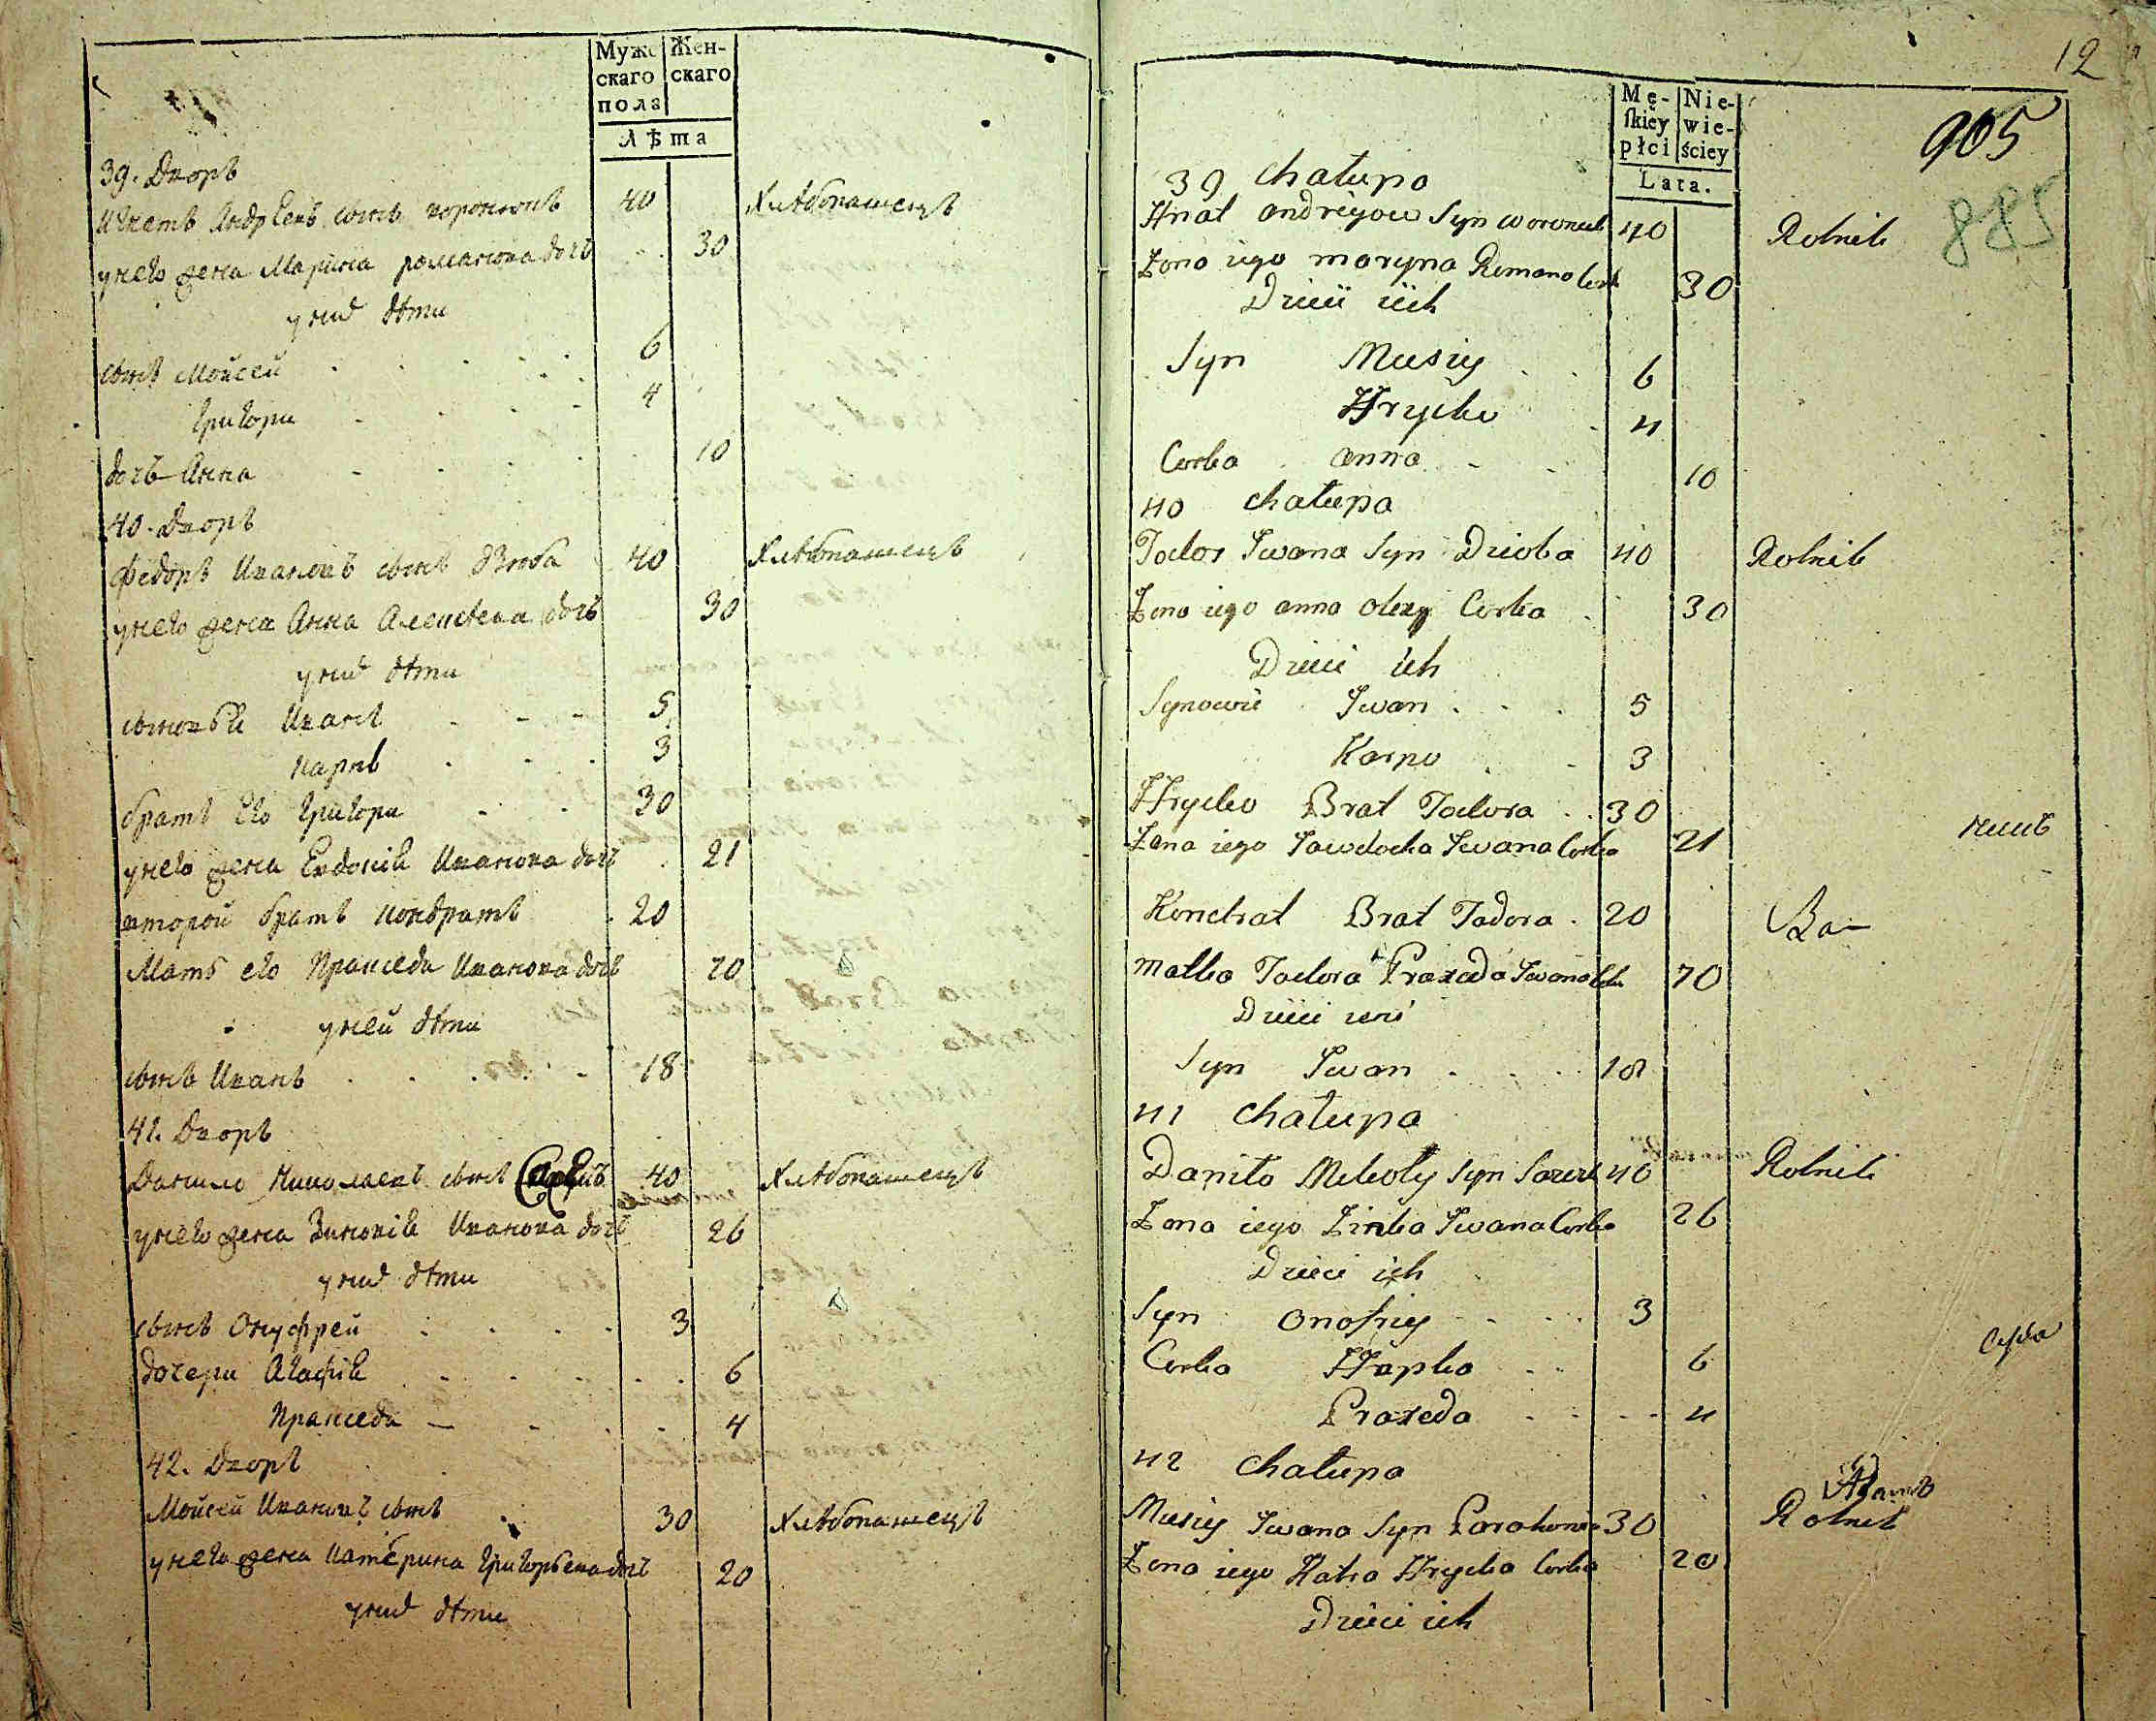 Муже Жен-
скаго скаго
пола
Лѣта
39. Дворъ
Игнатъ Андреевъ сынъ воронюкъ 40 Хлѣбопашецъ
унего жена Марина романова дочь 30
унихъ дѣти
сынъ Мойсей 6
Григори 4
дочь Анна 10
40. Дворъ
Федоръ Ивановъ сынъ дзюба 40 Хлѣбопашецъ
унего жена Анна Алексѣева дочь 30
унихъ дѣти
сыновьй Иванъ 5
карпъ 3
братъ Его Григори 30
унего жена Евдокія Иванова дочь 21
второй братъ кондратъ 20
Мать его Пракседа Иванова дочь 70
уней дѣти
сынъ Иванъ 18
41. Дворъ
Данило Николаевъ сынъ 40 Хлѣбопашецъ
унего жена Зиновія Иванова дочь 26
унихъ дѣти
сынъ Онуфрей 3
дочери Агафія 6
Пракседа 4
42. Дворъ
Мойсей Ивановъ сынъ 30 Хлѣбопашецъ
унего жена катерина Григорьева дочь 20
унихъ дѣти
12
905
885
Mę- Nie-
ſkiey wie-
płci ściey
Lata.
39 Chałupa
Hnat andreyow Syn woroniuk 40 Rolnik
Żona iego maryna Romana Corka 30
Dzieci iich
Syn Musiy 6
Hrycko 4
Corka anna 10
40 Chałupa
Todor Iwana Syn Dzioba 40 Rolnik
Żona iego anna olexy Corka 30
Dzieci ich
Synowie Iwan 5
Karpo 3
Hrycko Brat Todora 30
Żona iego Jawdocka Iwana Corka 21
Kondrat Brat Todora 20
matka Todora Praxeda Iwana Corka 70
Dzieci ieii
Syn Iwan 18
41 Chałupa
Daniło Mikoły Syn 40 Rolnik
Żona iego Zinka Iwana Corka 26
Dzieci ich
Syn Onofriy 3
Corka Hapka 6
Praxeda 4
42 Chałupa
Musiy Iwana Syn 30 Rolnik
Żona iego Katra Hrycka Corka 20
Dzieci ich